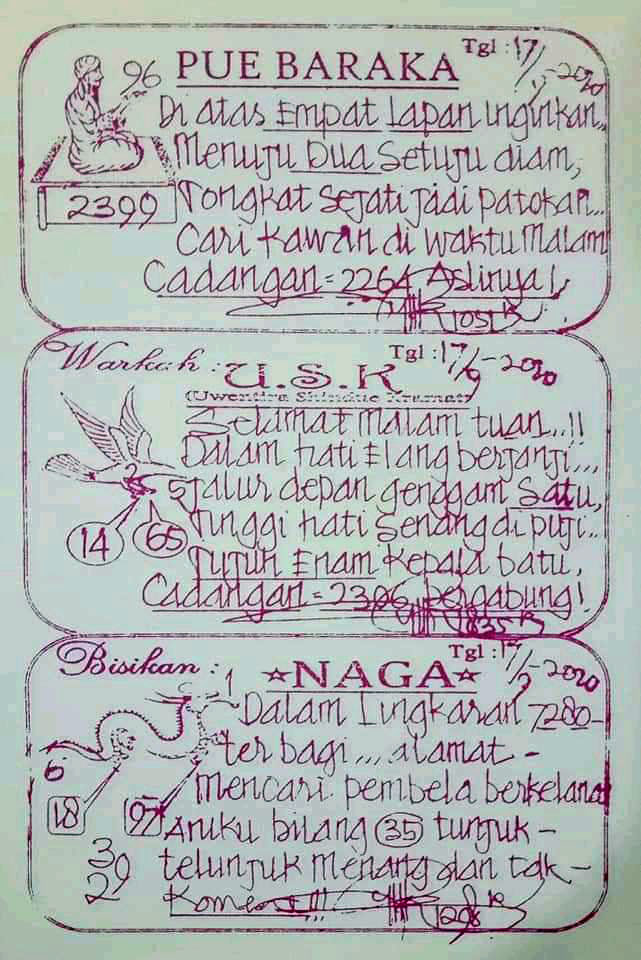 PUE BARAKA
Tgl : 17/ - 2020
96
Di atas Empat Lapan Inginkan..
Menuju Dua Setuju diam,
2399
Tongkat Sejati jadi Patokan...
Cari Kawan di waktu Malam
Cadangan = 2264, Aslinya!,
1051 K
Warkah :
Tgl : 17/ - 2020
U.S.K
(Uwentira Shindue Kramat)
Selamat Malam tuan...!!
Dalam hati Elang berjanji...,
5 Jalur depan genggam Satu,
14 65
Tinggi hati Senang di puji...
Tujuh Enam Kepala batu,
Cadangan = 2306, Bergabung!
835 K
Bisikan :
Tgl : 17/ - 2020
☆NAGA☆
1
Dalam Lingkaran 7280-
ter bagi... alamat -
6
Mencari pembela berkelana
18 97
Aruku bilang 35 tunjuk -
39
telunjuk Menang dan tak -
29
Komens!!!
1208 K